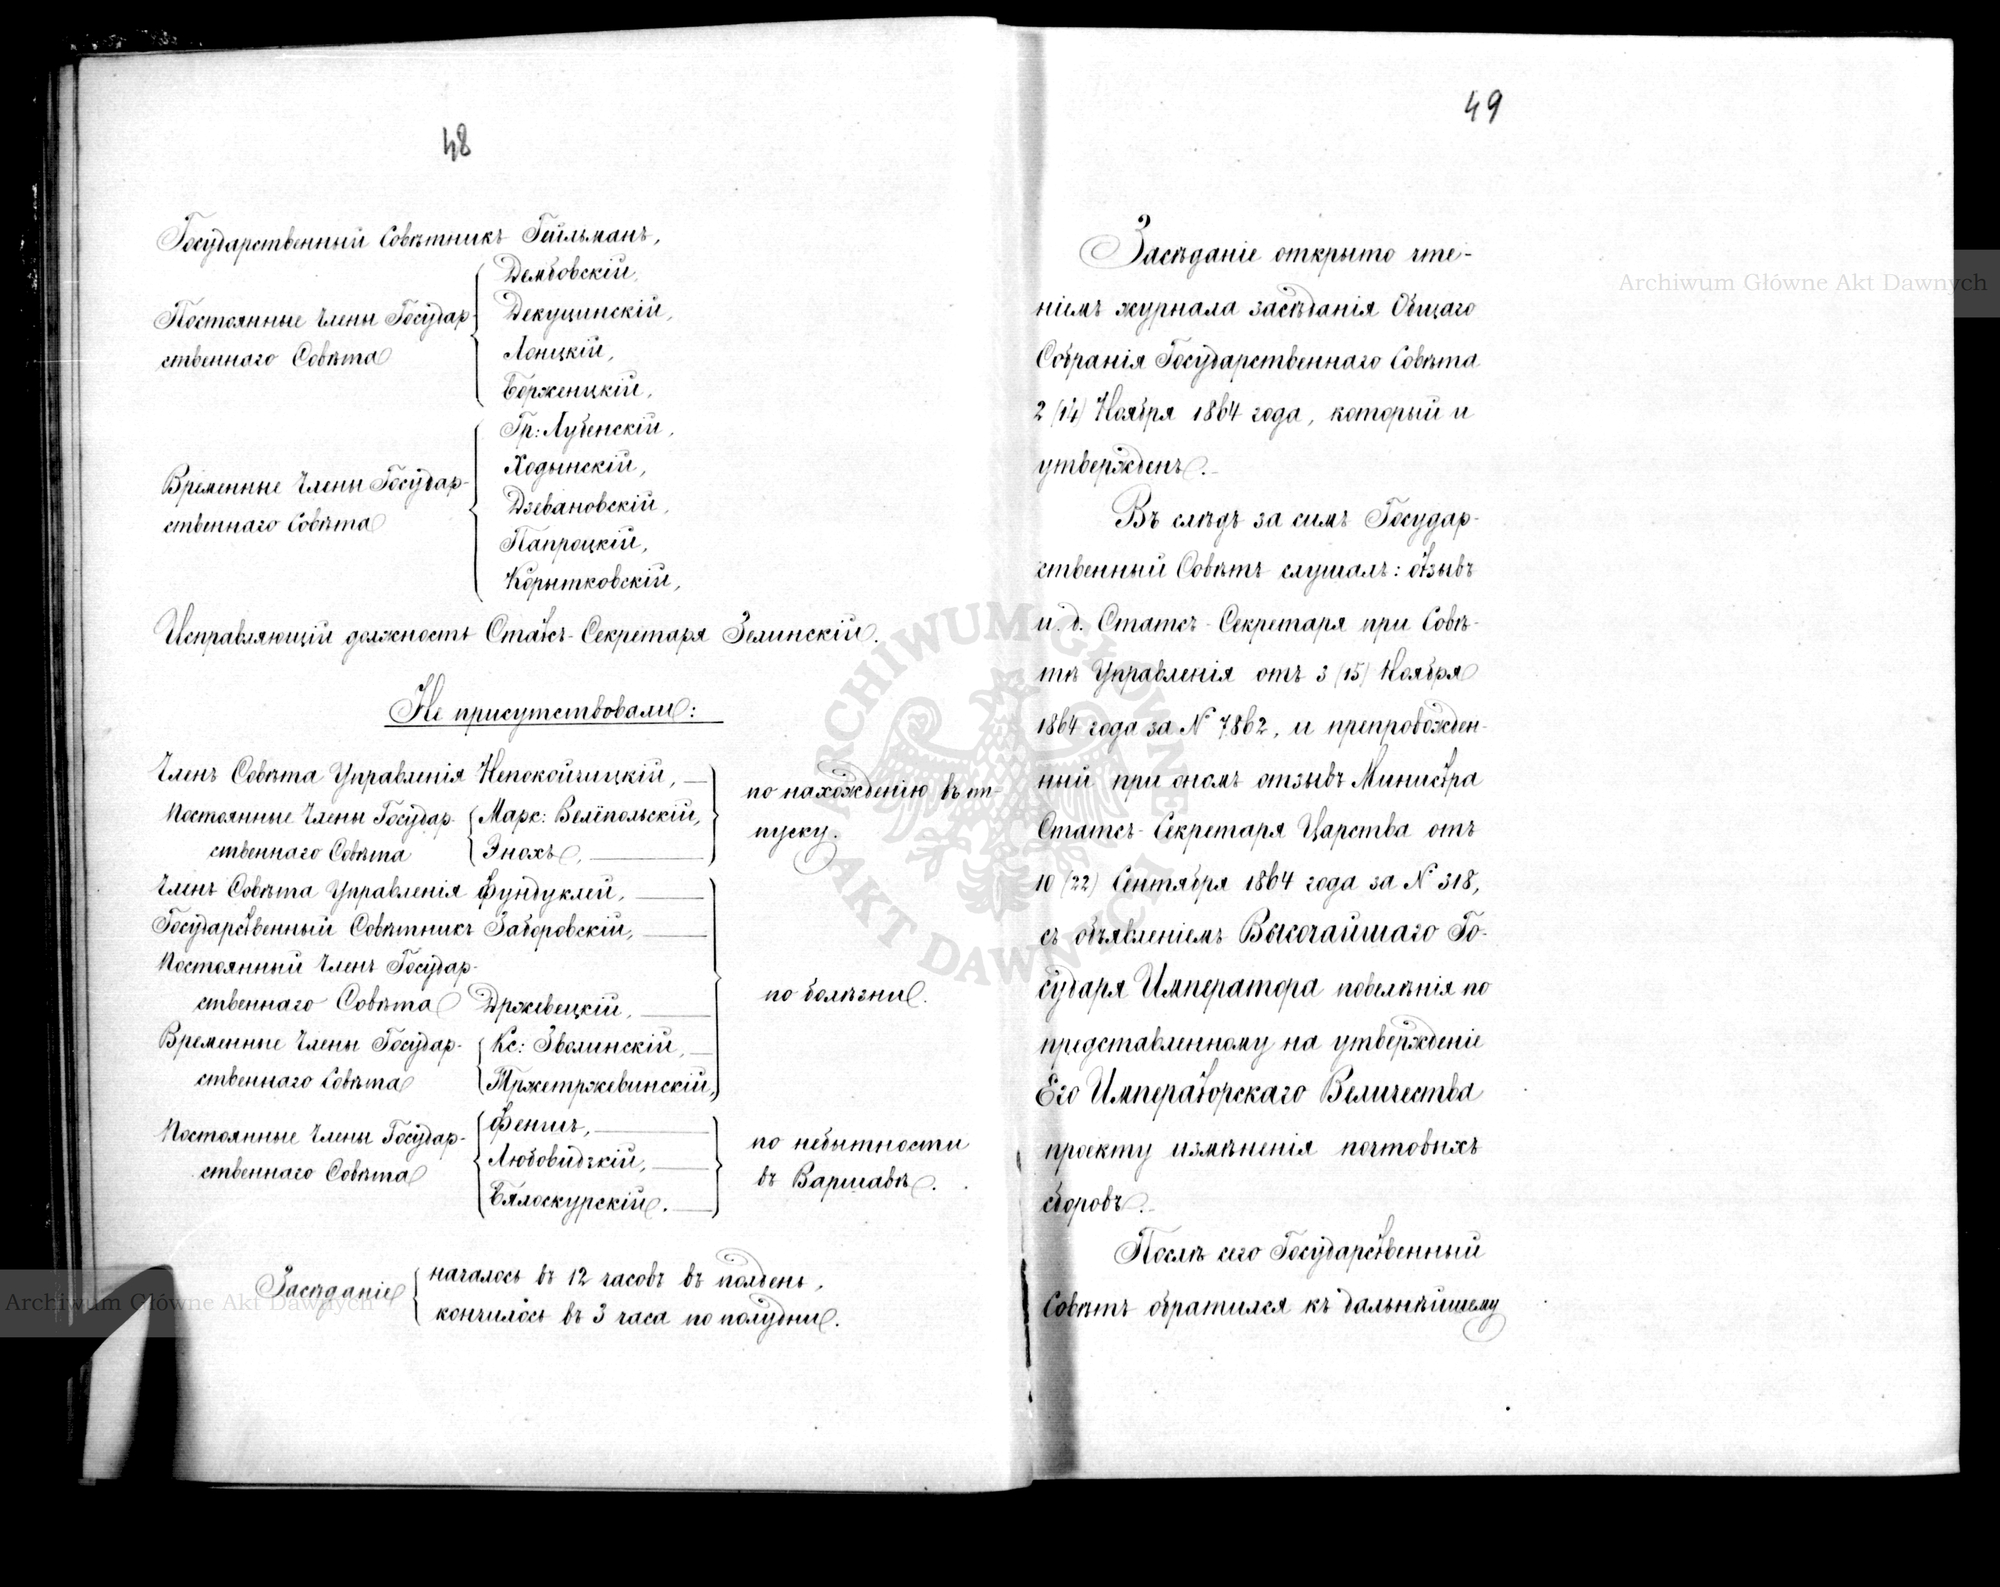 48
Государственный Совѣтникъ Гейльманъ,
Постоянные Члены Государ-
ственнаго Совѣта
Дембовскій,
Декуцинскій,
Лонцкій,
Борженцкій,
Временные Члены Государ-
ственнаго Совѣта
Гр: Лубенскій,
Ходынскій,
Дзевановскій,
Папроцкій,
Корытковскій,
Исправляющій должность Статсъ-Секретаря Зелинскій.
Не присутствовали:
Членъ Совѣта Управленія Непокойчицкій,
Постоянные Члены Государ-
ственнаго Совѣта
Марк: Велёпольскій,
Энохъ,
по нахожденію въ от-
пуску.
Членъ Совѣта Управленія Фундуклей,
Государственный Совѣтникъ Заборовскій,
Постоянный Членъ Государ-
ственнаго Совѣта Држевецкій,
Временные Члены Государ-
ственнаго Совѣта
Кс: Зволинскій,
Тржетржевинскій,
по болѣзни.
Постоянные Члены Государ-
ственнаго Совѣта
Феншъ,
Любовидзкій,
Бялоскурскій.
по небытности
въ Варшавѣ.
Засѣданіе
началось въ 12 часовъ въ полдень,
кончилось въ 3 часа по полудни.
49
Засѣданіе открыто чте-
ніемъ журнала засѣданія Общаго
Собранія Государственнаго Совѣта
2 (14) Ноября 1864 года, который и
утвержденъ.
Въ слѣдъ за симъ Государ-
ственный Совѣтъ слушалъ: отзывъ
и. д. Статсъ-Секретаря при Совѣ-
тѣ Управленія отъ 3 (15) Ноября
1864 года за № 7862, и препровожден-
ный при ономъ отзывъ Министра
Статсъ-Секретаря Царства отъ
10 (22) Сентября 1864 года за № 318,
съ объявленіемъ Высочайшаго Го-
сударя Императора повелѣнія по
представленному на утвержденіе
Его Императорскаго Величества
проекту измѣненія почтовыхъ
сборовъ.
Послѣ сего Государственный
Совѣтъ обратился къ дальнѣйшему
Archiwum Główne Akt Dawnych
Archiwum Główne Akt Dawnych
ARCHIWUM GŁÓWNE
AKT DAWNYCH